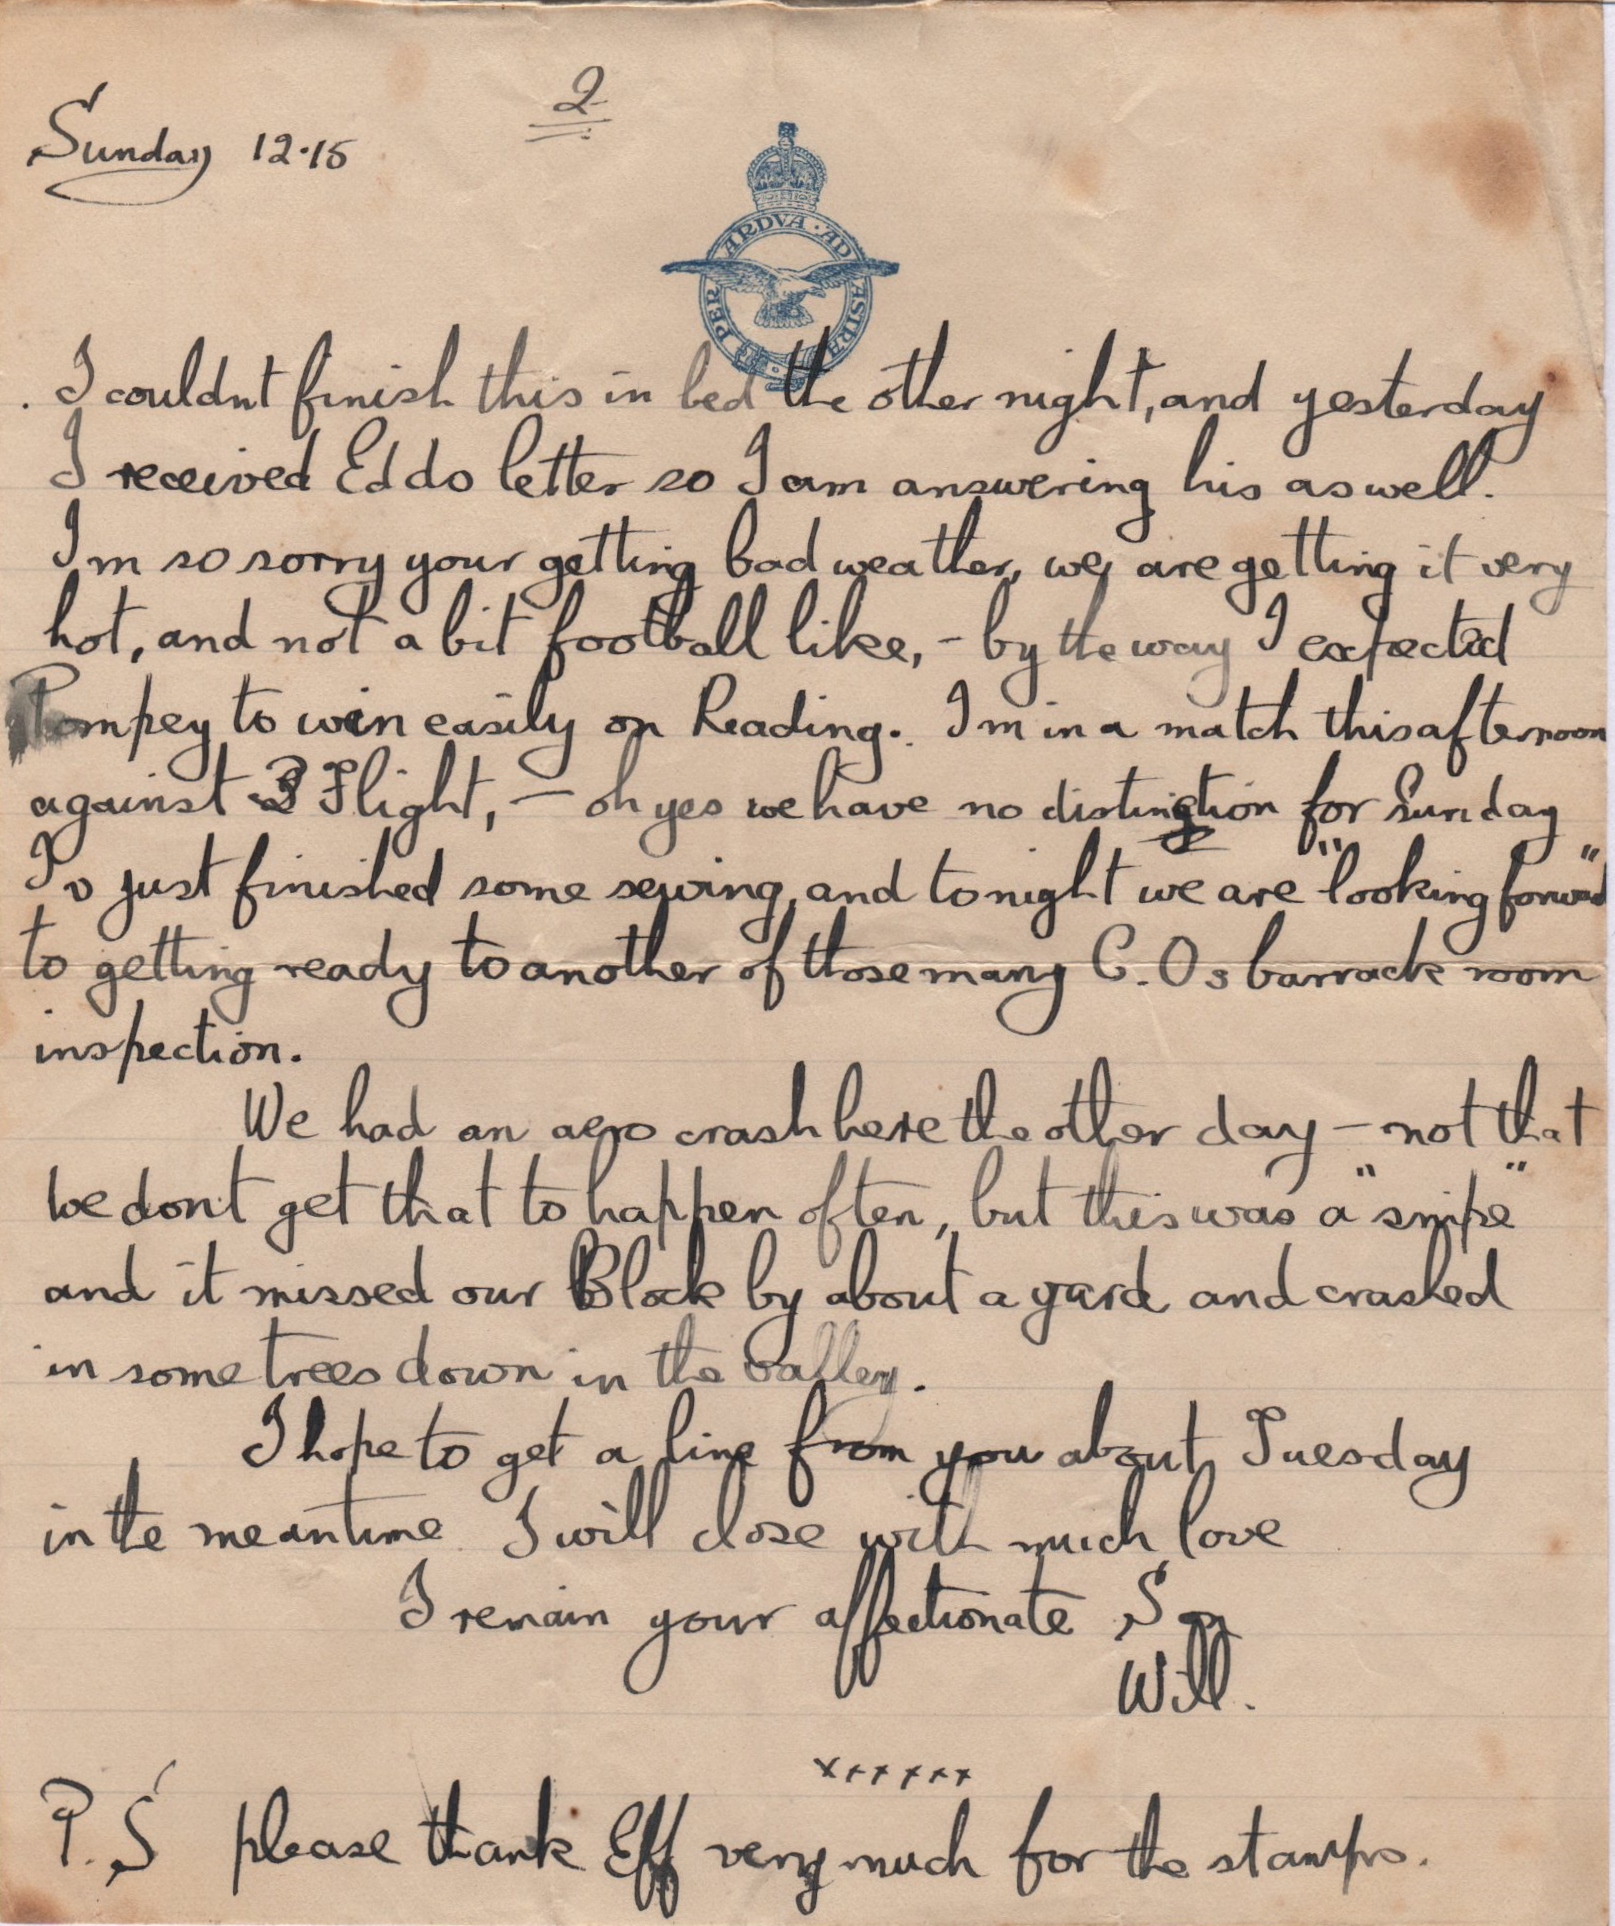 2
Sunday 12.15
PER ARDVA AD ASTRA
I couldnt finish this in bed the other night, and yesterday
I received Eddo letter so I am answering his as well.
I'm so sorry your getting bad weather, we are getting it very
hot, and not a bit football like, - by the way I expected
Pompey to win easily on Reading. I'm in a match this afternoon
against 3 Flight, - oh yes we have no distinction for Sunday
I'v just finished some sewing, and tonight we are "looking forward"
to getting ready to another of those many C.Os barrack room
inspection.
We had an aero crash here the other day - not that
we don't get that to happen often, but this was a "snipe"
and it missed our Block by about a yard and crashed
in some trees down in the valley.
I hope to get a line from you about Tuesday
in the meantime I will close with much love
I remain your affectionate Son
Will.
xxxxxx
P.S please thank Eff very much for the stamps.